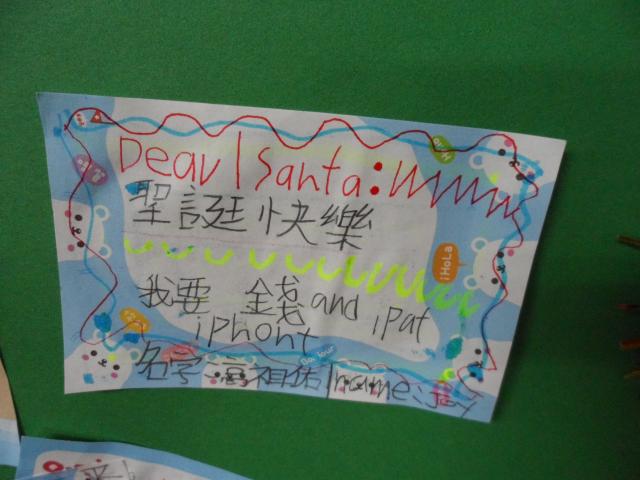 Dear Santa:
聖誕快樂
我要 錢 and iPat
iphont
名字 高祖佑 name: Jay
iHoLa